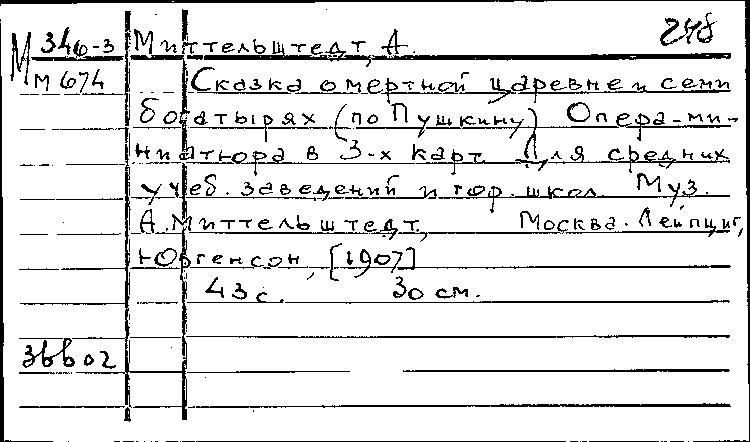 248
М 346-3 Миттельштедт, А.
М 674 Сказка о мертной царевне и семи
богатырях (по Пушкину) Опера-ми-
ниатюра в 3-х карт. Для средних
учеб. заведений и гор. школ. Муз.
А. Миттельштедт, Москва. Лейпциг,
Юргенсон, [1907]
43 с. 30 см.